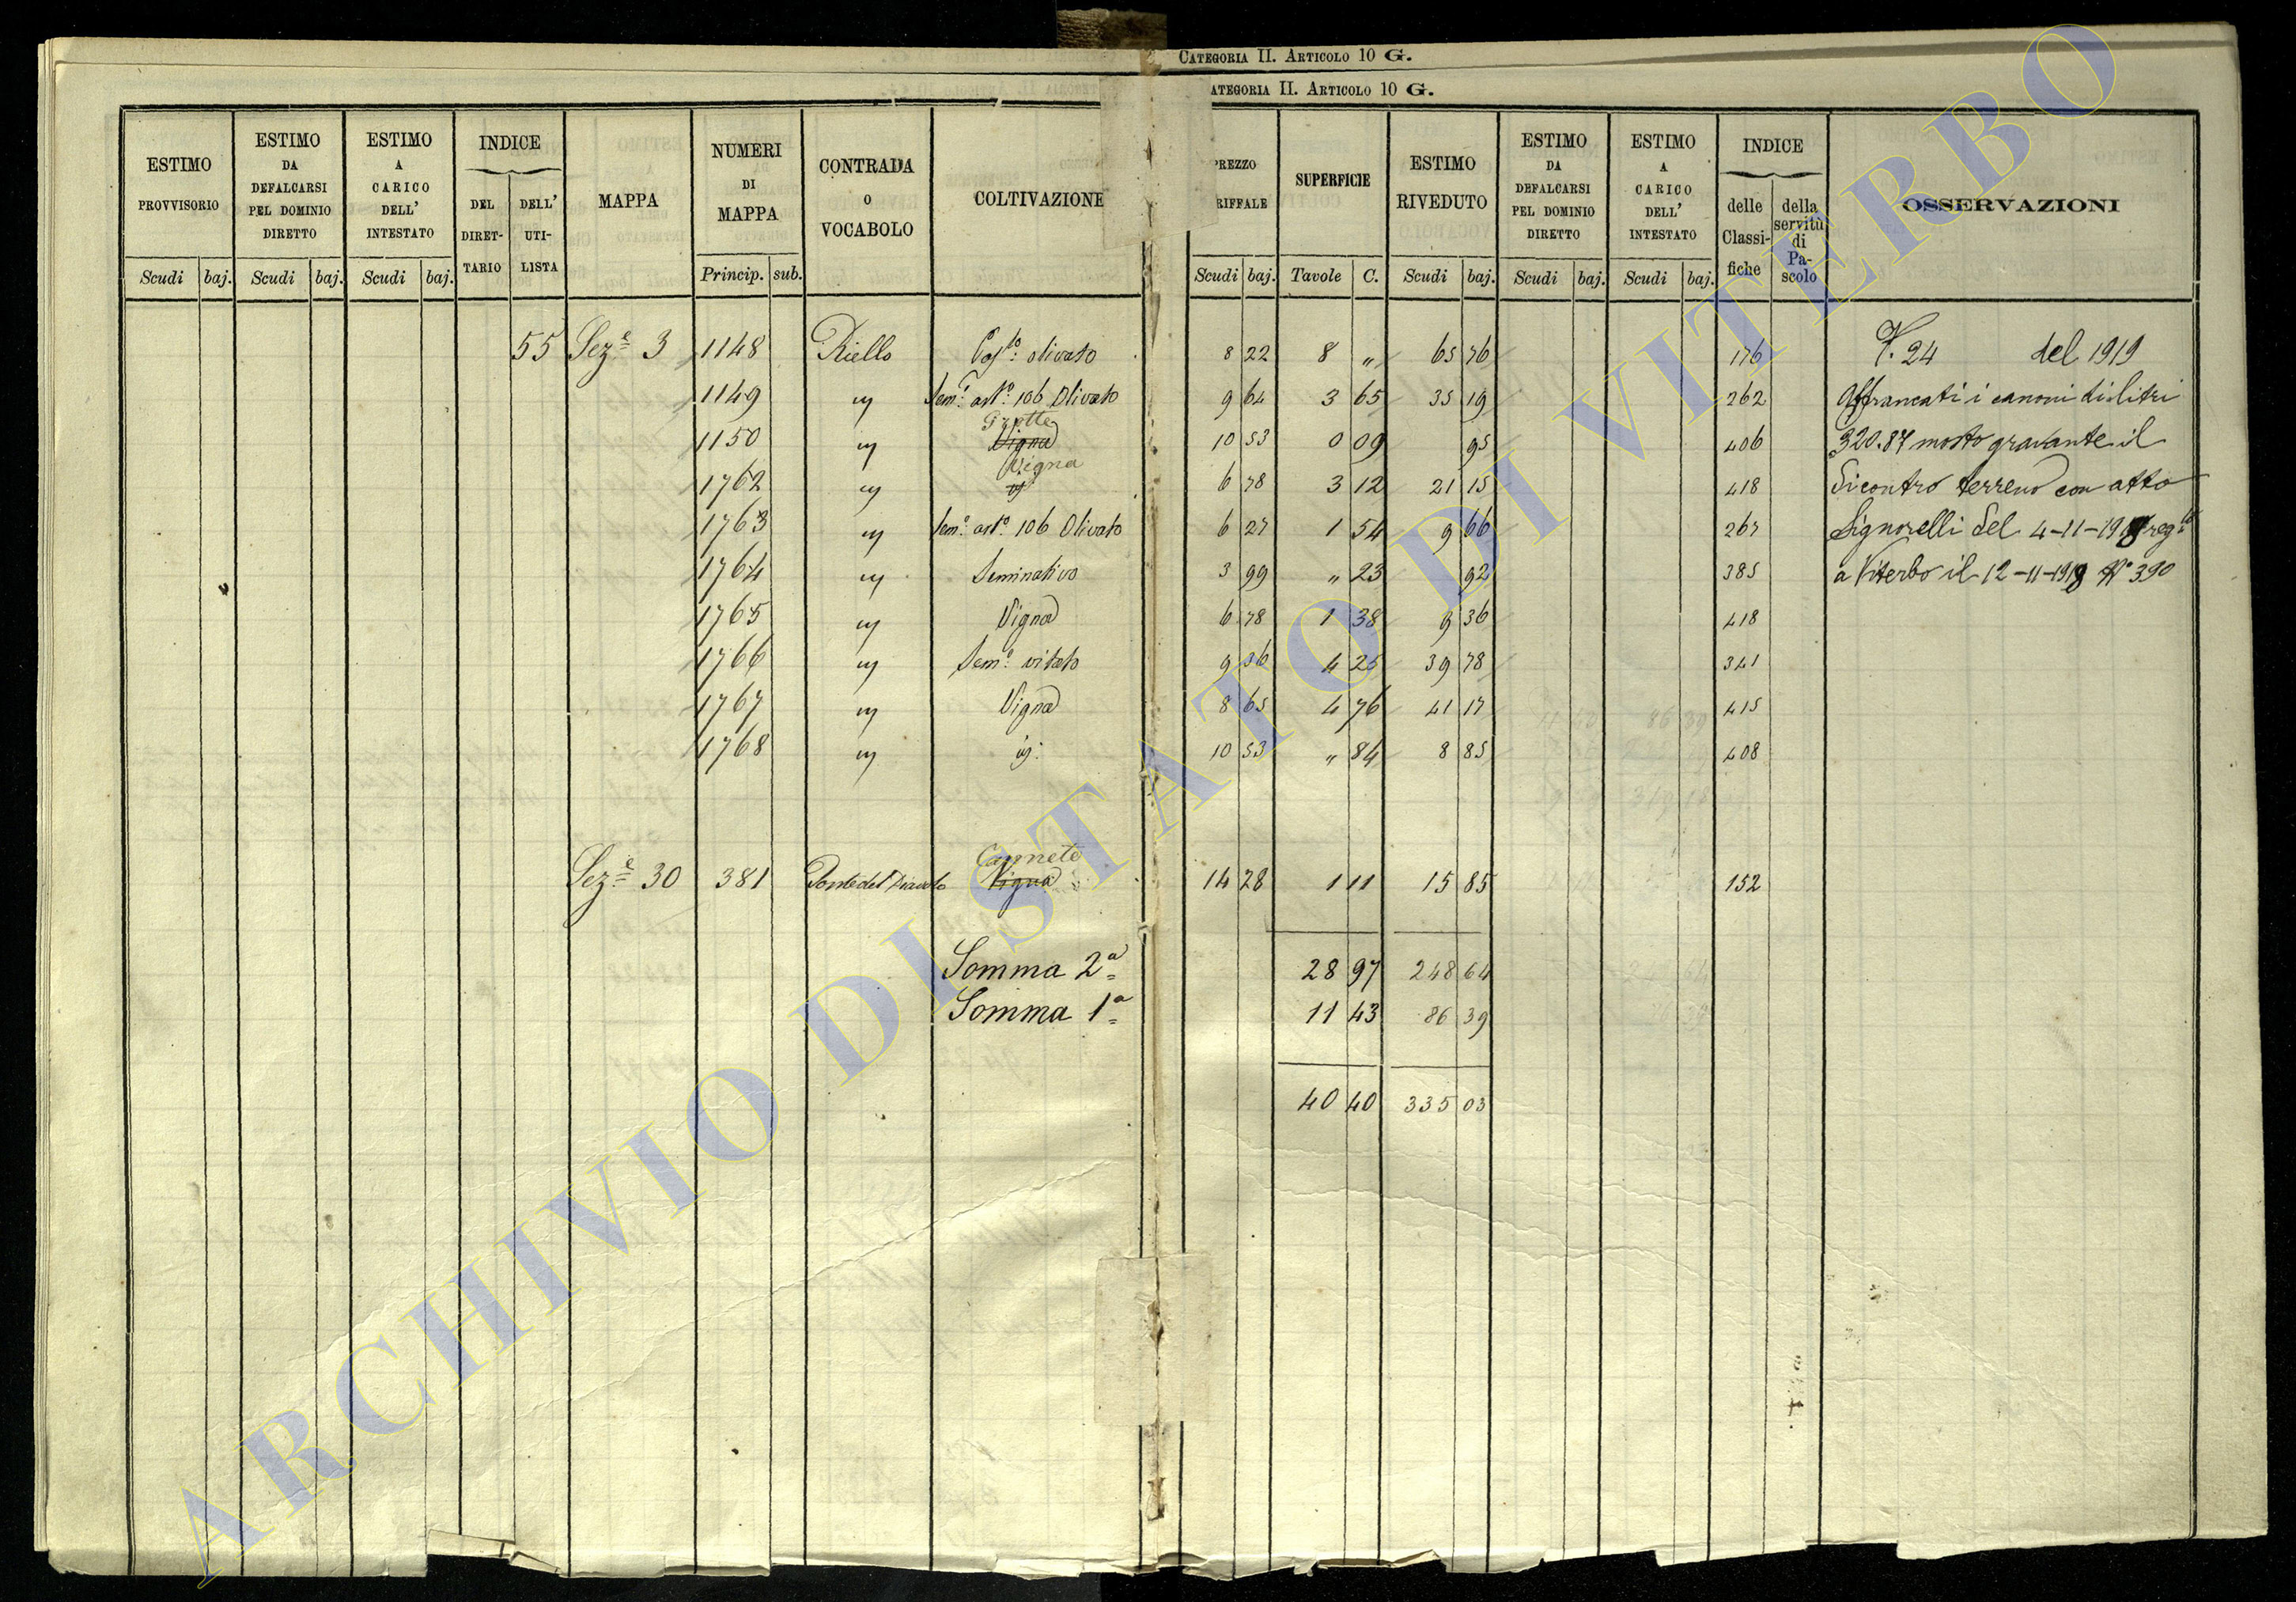 CATEGORIA II. ARTICOLO 10 G.
ATEGORIA II. ARTICOLO 10 G.
ESTIMO PROVVISORIO Scudi baj.
ESTIMO DA DEFALCARSI PEL DOMINIO DIRETTO Scudi baj.
ESTIMO A CARICO DELL' INTESTATO Scudi baj.
INDICE DEL DIRET- TARIO DELL' UTI- LISTA
MAPPA
NUMERI DI MAPPA Princip. sub.
CONTRADA O VOCABOLO
COLTIVAZIONE
REZZO RIFFALE Scudi baj.
SUPERFICIE Tavole C.
ESTIMO RIVEDUTO Scudi baj.
ESTIMO DA DEFALCARSI PEL DOMINIO DIRETTO Scudi baj.
ESTIMO A CARICO DELL' INTESTATO Scudi baj.
INDICE delle Classi- fiche della servitù di Pa- scolo
OSSERVAZIONI
55 Sez.e 3 1148 Riello olivato 8 22 8 " 65 76 176 V. 24 del 1919
1149 " Sem.o art.o 106 Olivato 9 64 3 65 35 19 262 Affrancati i canoni di litri
Grotte
1150 " Vigna 10 53 0 09 95 406 320.87 mosto gravante il
Vigna
1762 " 6 78 3 12 21 15 418 dicontro terreno con atto
1763 " Sem.o art.o 106 Olivato 6 27 1 54 9 66 267 Signorelli del 4-11-1918 reg.to
1764 " Seminativo 3 99 " 23 92 385 a Viterbo il 12-11-1918 N° 390
1765 " Vigna 6 78 1 38 9 36 418
1766 " Sem.o vitato 9 36 4 25 39 78 341
1767 " Vigna 8 65 4 76 41 17 415
1768 " id. 10 53 " 84 8 85 408
Canneto
Sez.e 30 381 Ponte del Diavolo Vigna 14 28 1 11 15 85 152
Somma 2a 28 97 248 64
Somma 1a 11 43 86 39
40 40 335 03
ARCHIVIO DI STATO DI VITERBO